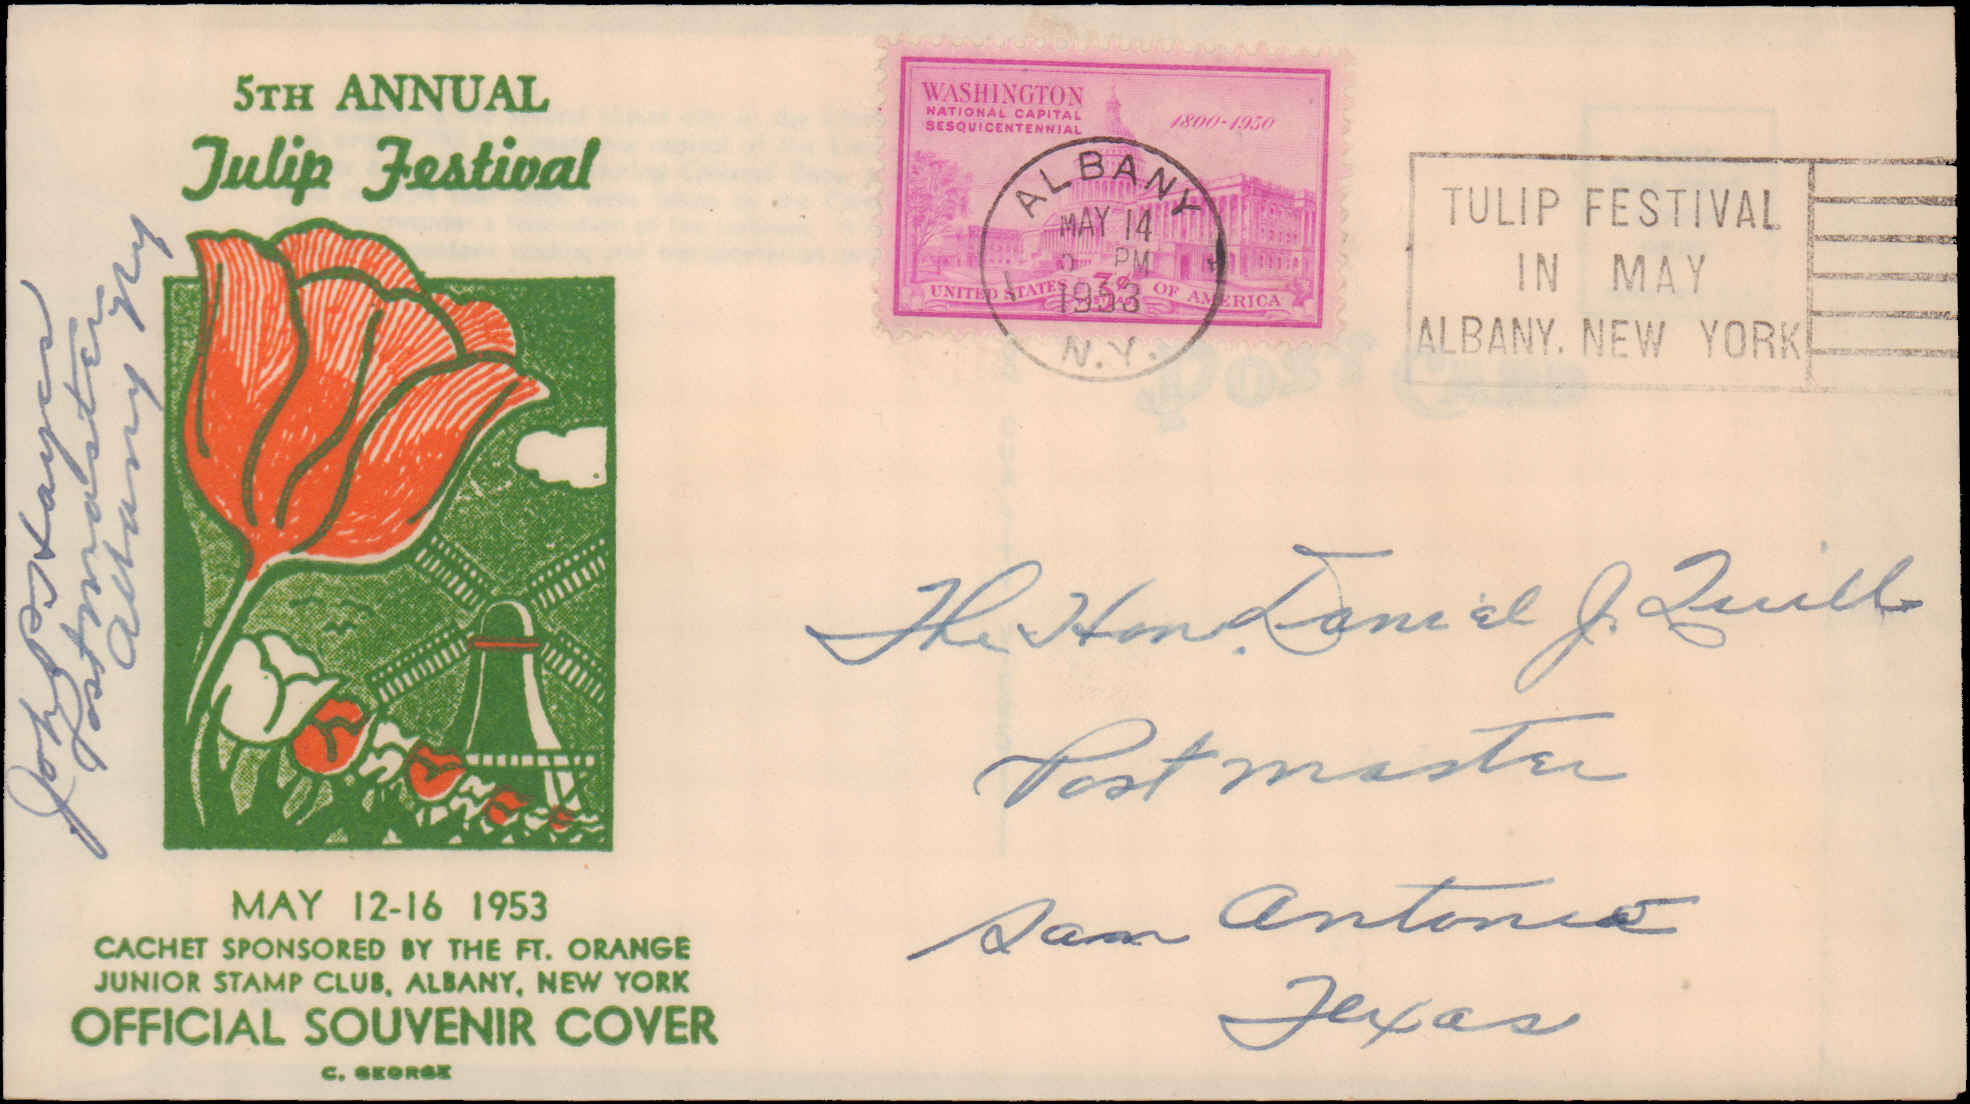 5TH ANNUAL
Tulip Festival
MAY 12-16 1953
CACHET SPONSORED BY THE FT. ORANGE
JUNIOR STAMP CLUB, ALBANY, NEW YORK
OFFICIAL SOUVENIR COVER
C. GEORGE
John P. Hayes
Postmaster
Albany NY
WASHINGTON
NATIONAL CAPITAL
SESQUICENTENNIAL
1800-1950
3¢
UNITED STATES OF AMERICA
ALBANY
MAY 14
PM
1953
N.Y.
TULIP FESTIVAL
IN MAY
ALBANY, NEW YORK
The Hon. Daniel J. Quill
Postmaster
San Antonio
Texas